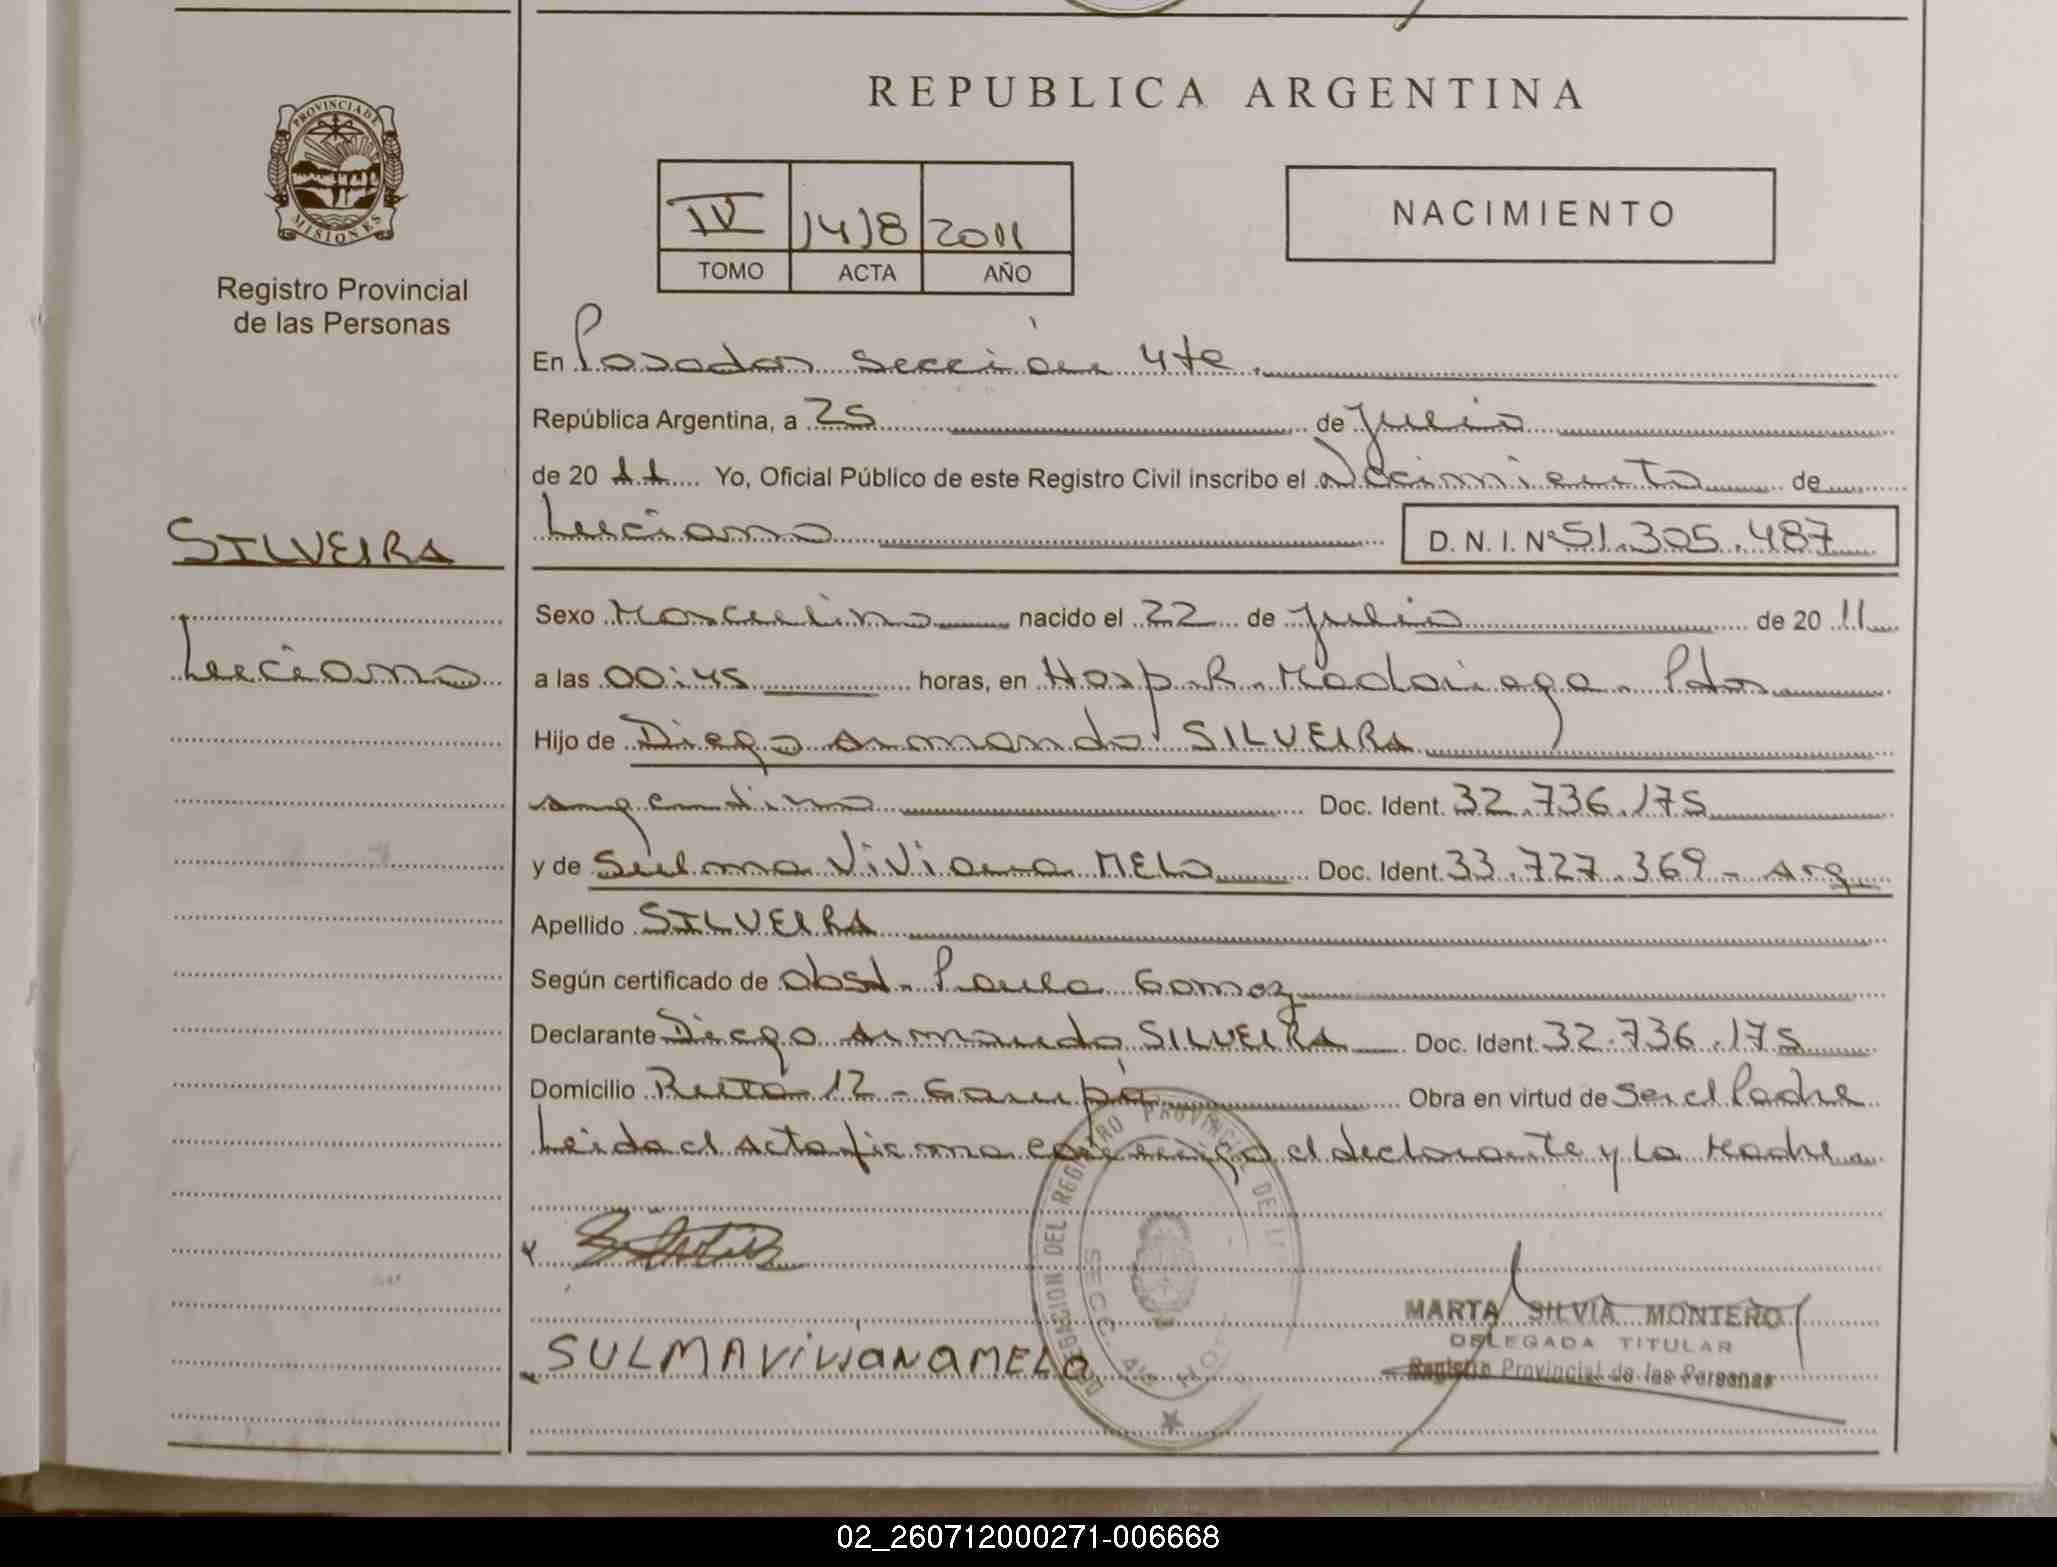 REPUBLICA ARGENTINA
PROVINCIA DE MISIONES
Registro Provincial
de las Personas
IV 1418 2011
TOMO ACTA AÑO
NACIMIENTO
En Posadas Sección 4ta
República Argentina, a 25 de Julio
de 20 11 Yo, Oficial Público de este Registro Civil inscribo el Nacimiento de
Luciano D. N. I. Nº 51.305.487
SILVEIRA
Luciano
Sexo Masculino nacido el 22 de Julio de 20 11
a las 00:45 horas, en Hosp. R. Madariaga - Pdas
Hijo de Diego Armando SILVEIRA
argentino Doc. Ident. 32.736.175
y de Sulma Viviana MELO Doc. Ident. 33.727.369 - Arg.
Apellido SILVEIRA
Según certificado de obst. Paula Gomez
Declarante Diego Armando SILVEIRA Doc. Ident. 32.736.175
Domicilio Ruta 12 - Garupá Obra en virtud de Ser el Padre
Leida el Acta firma conmigo el declarante y La Madre
DELEGACION DEL REGISTRO PROVINCIAL DE
SECC. 4ta
SULMA ViViANA MELO
MARTA SILVIA MONTERO
DELEGADA TITULAR
Registro Provincial de las Personas
02_260712000271-006668